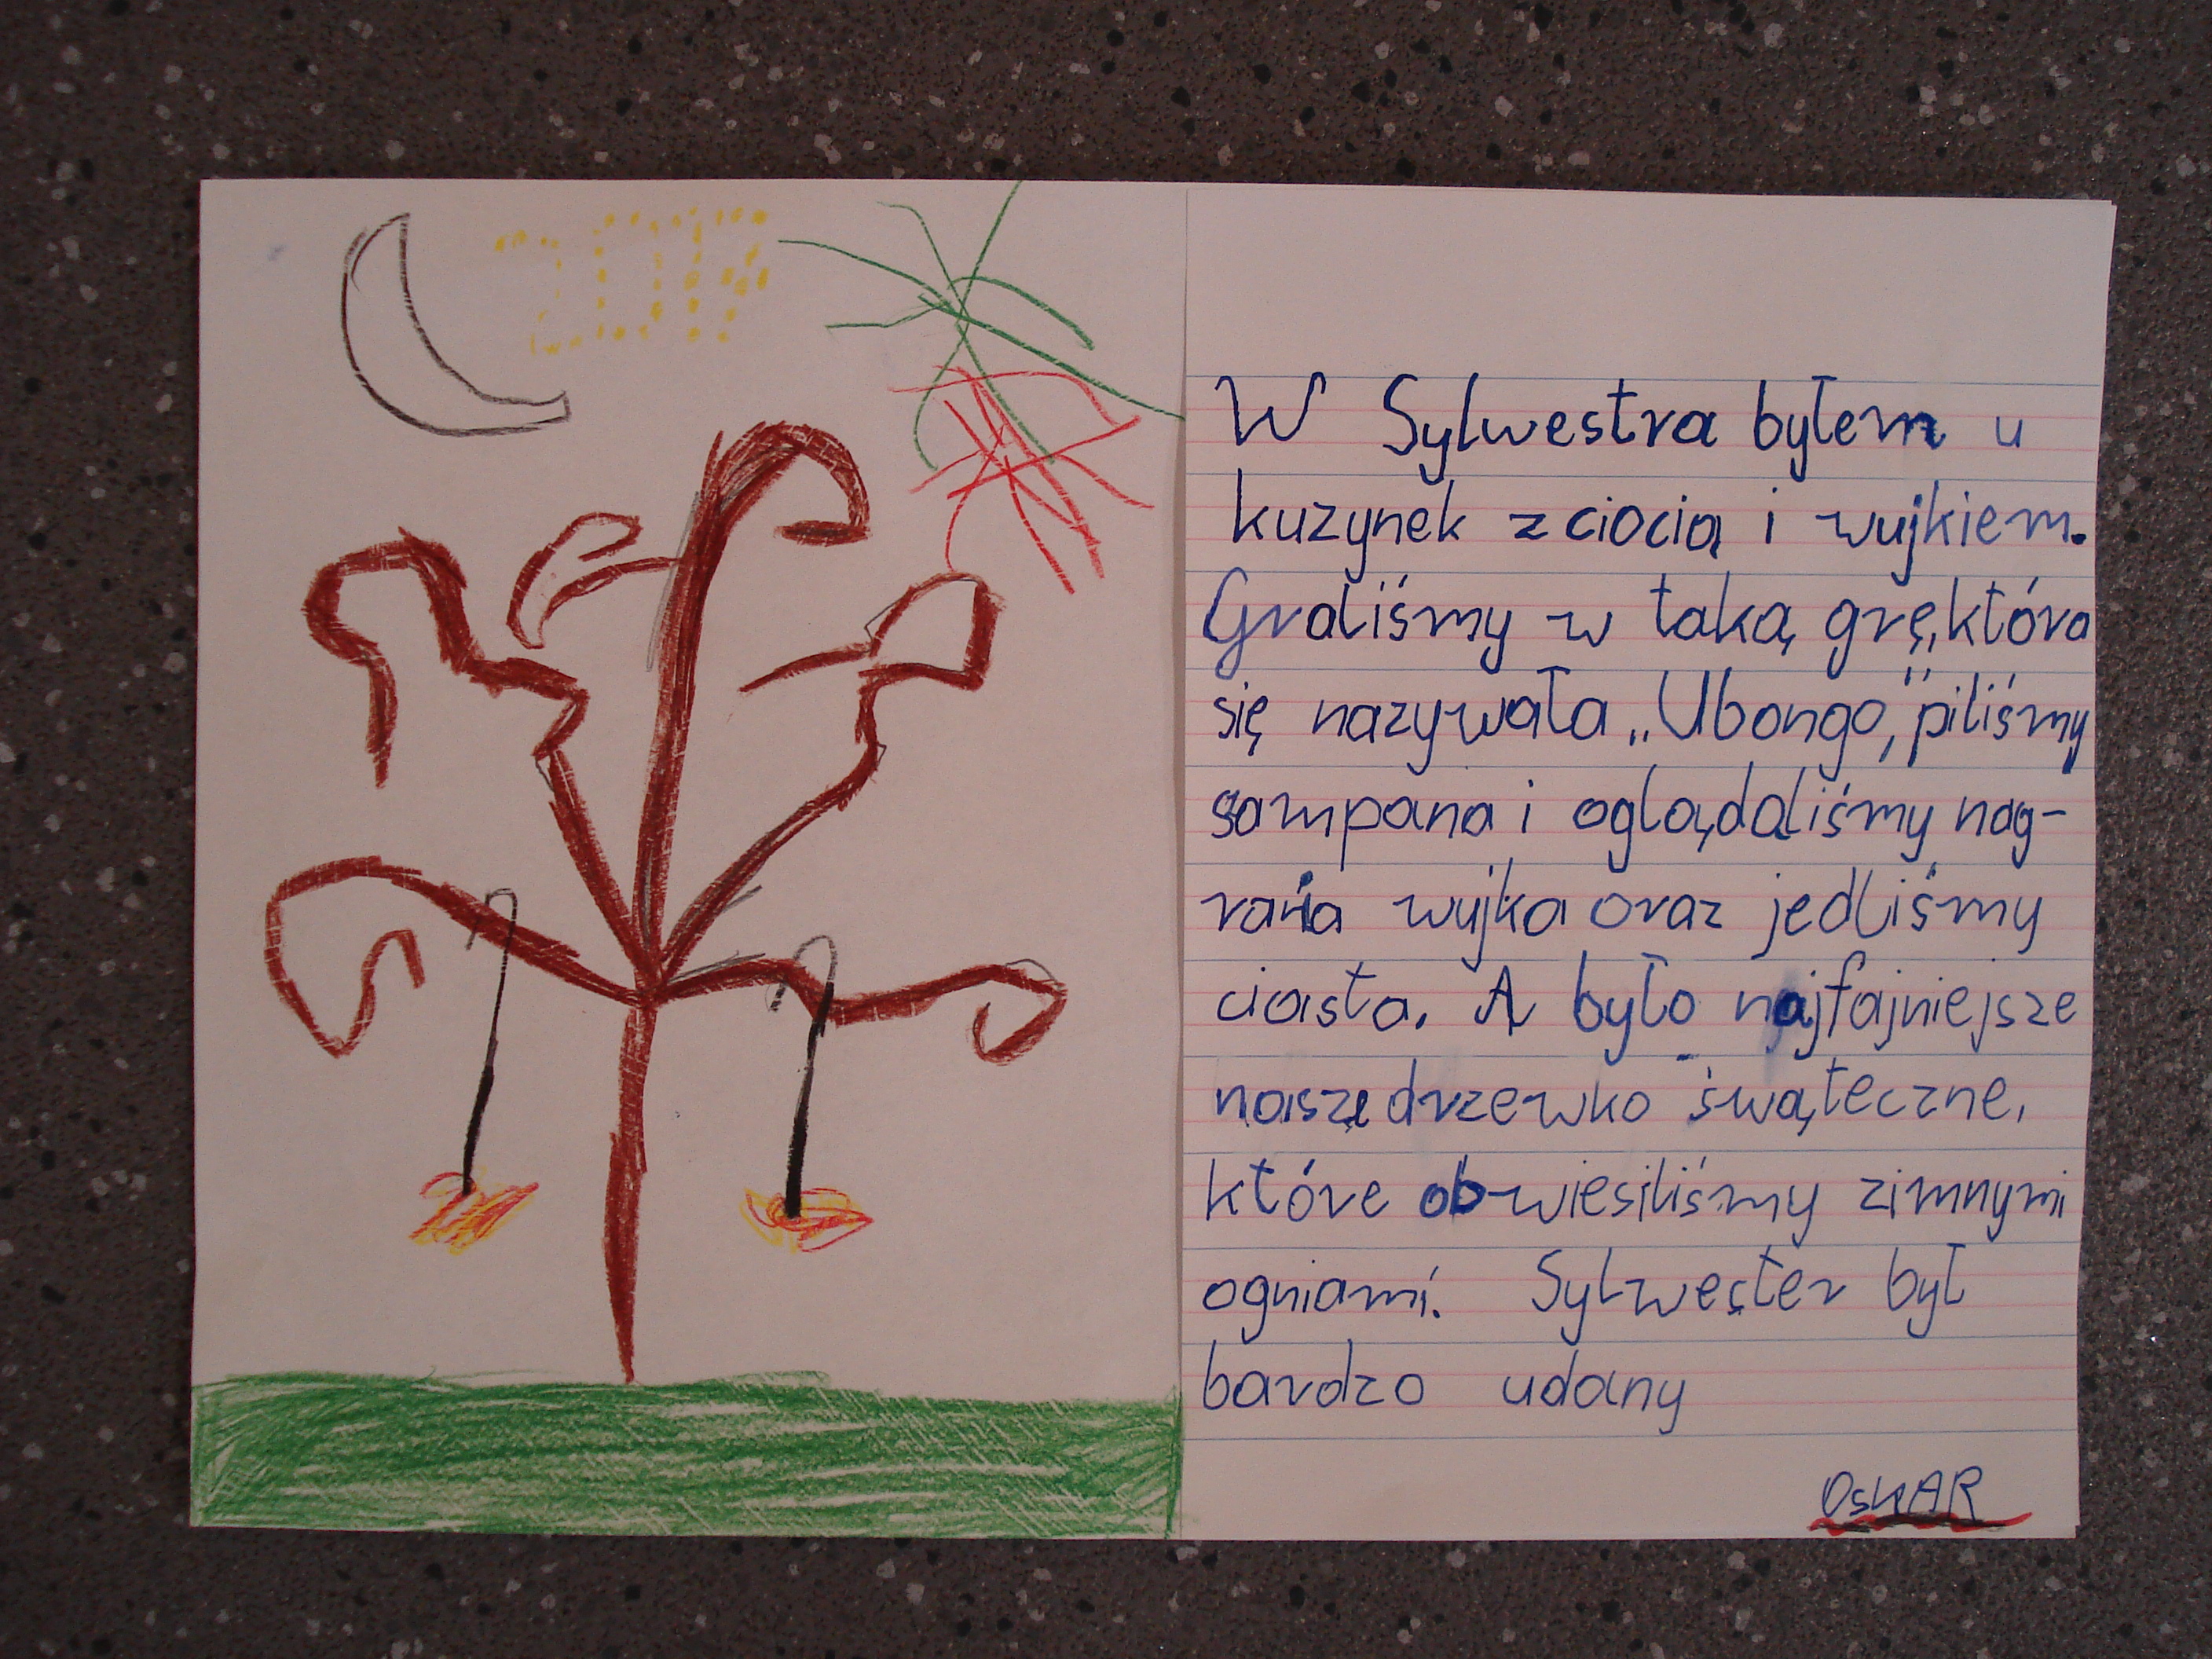 2017
W Sylwestra byłem u
kuzynek z ciocią i wujkiem.
Graliśmy w taką grę, która
się nazywała „Ubongo", piliśmy
sampana i oglądaliśmy nag-
rania wujka oraz jedliśmy
ciasta. A było najfajniejsze
nasze drzewko świąteczne,
które obwiesiliśmy zimnymi
ogniami. Sylwester był
bardzo udany
OSKAR